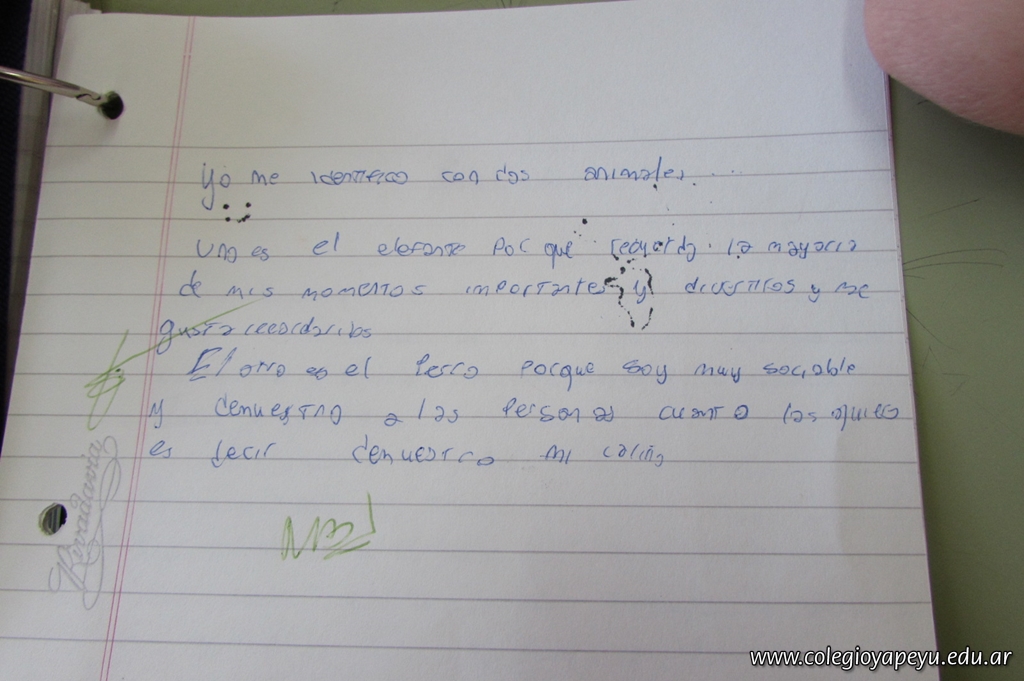 Yo me identifico con dos animales
Uno es el elefante Por que recuerdo la mayoria
de mis momentos importantes y divertidos y me
gusta recordarlos
El otro es el Perro Porque soy muy sociable
y demuestro a las Personas cuanto las quiero
es decir demuestro mi cariño
MB!
Rivadavia
www.colegioyapeyu.edu.ar